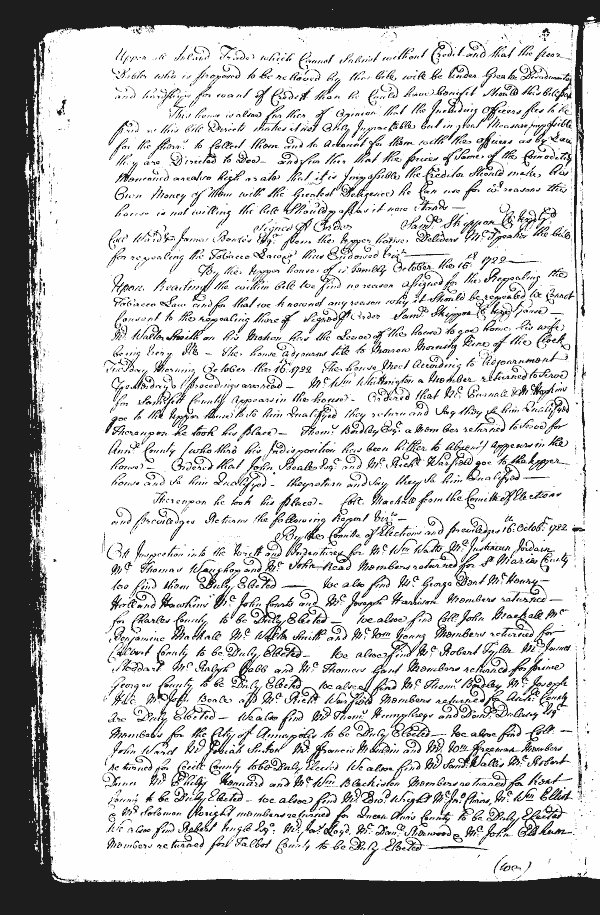 Upper all Inland Trade which Cannot Subsist without Credit and that the poor
Debtor who is proposed to be relieved by this bill will be under Greater Disadvantage
and hardships for want of Credit than he Could have thought Should this bill pass
This house is also further of Opinion that the Including Officers fees to be
paid in this bill Directs makes it not Only Impracticable but in great Measure impossible
for the Sherr. to Collect them and to Account for them with the Officers as by Law
they are Directed to Doe and further that the prices of Some of the Comodities
Mentioned are at so high a rate that it is Impossible the Creditor Should make his
Own Money of them with the Greatest Deligence he Can use for which reasons this
house is not willing the bill Should pass as it now Stands
Signed p Order Saml. Skippon Cl Up Ho
Coll Ward & James Bowles Esqr. from the upper house Delivers Mr. Speaker the bill
for repealing the Tobacco Law thus Endorsed vizt.
By the upper house of Assembly October the 16th 1722
Upon Reading the within bill we find no reason assigned for the Repealing the
Tobacco Law and for that we know not any reason why it Should be repealed we Cannot
Consent to the repealing thereof Signed p Order Saml. Skippon Cl Up House
Mr. Walter Smith on his Motion has the Leave of the house to goe home his wife
being Very Ill The house Adjourns till to Morrow Morning Nine of the Clock
Morning October the 16 1722 The house Met According to Adjournment
Yesterdays proceedings are read Mr. Wm Whittington a Member returned to Serve
for Somerset County Appears in the house Ordered that Mr. and Mr. Hopkins
goe to the upper house to See him Qualifyed they return and Say they See him Qualifyed
Thereupon he took his place Thoms. Bordley Esqr. a Member returned to Serve for
Ann County (who thro his Indisposition has been hitherto Absent) appears in the
house Ordered that John Beale Esqr and Mr. Richd Warfield goe to the upper
house and See him Qualifyed they return and Say they See him Qualifyed
Thereupon he took his place Coll. Mackall from the Comitte of Elections
and priviledges Returns the following Report Vizt.
By the Comitte of Elections and priviledges 16th October 1722
On Inspection into the Writts and Indentures for Mr. Wm Watts Mr. Justinian Jordain
Mr. Thomas Waughop and Mr. John Read Members returned for St Maries County
We find them Duly Elected We also find Mr. George Dent Mr. Henry
Holland Hawkins Mr. John Courts and Mr. Joseph Harrison Members returned
for Charles County to be Duly Elected We also find Coll John Mackall Mr.
Benjamine Mackall Mr. Walter Smith and Mr. Wm Young Members returned for
Calvert County to be Duly Elected We also find Mr. Robert Tyler Mr. James
Stoddart Mr. Ralph Crabb and Mr. Thomas Gant Members returned for prince
Georges County to be Duly Elected We also find Mr. Thoms. Bordley Mr. Joseph
Hill Mr. Jon. Beale & Mr. Richd Warfield Members returned for Ann County
Are Duly Elected We also find Mr Thoms. Humphreys and Danl. Dulany Esqr
Members for the City of Annapolis to be Duly Elected We also find Coll
John Ward Mr. Mr. Francis Mauldin and Mr. Wm Freeman Members
returned for Cecil County to be Duly Elected We also find Mr. Wallis Mr. Robert
Dunn Mr. Philip Kennard and Mr. Wm Blackiston Members returned for Kent
County to be Duly Elected We also find Mr. Edw. Wright Mr. Jno Evans, Mr. Wm Elliot
& Mr. Solomon Wright members returned for Queen Anns County to be Duly Elected
We also find Robert Ungle Esqr. Mr. Jas. Loyd, Mr. Danl. Sherwood & Mr. John
Members returned for Talbot County to be Duly Elected